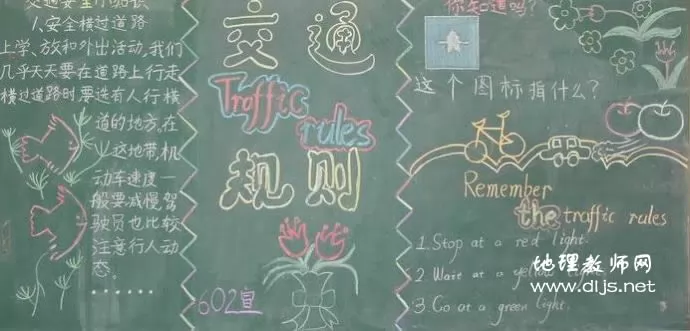 交通安全小知识
1、安全横过道路
上学、放和外出活动,我们
几乎天天要在道路上行走,
横过道路时要选有人行横
道的地方,在
这地带,机
动车速度一
般要减慢,驾
驶员也比较
注意行人动
态。
......
交通
Traffic
rules
规则
602宣
你知道吗?
这个图标指什么?
Remember
the traffic rules
1.Stop at a red light.
2.Wait at a yellow light.
3.Go at a green light.
地理教师网
www.dljs.net